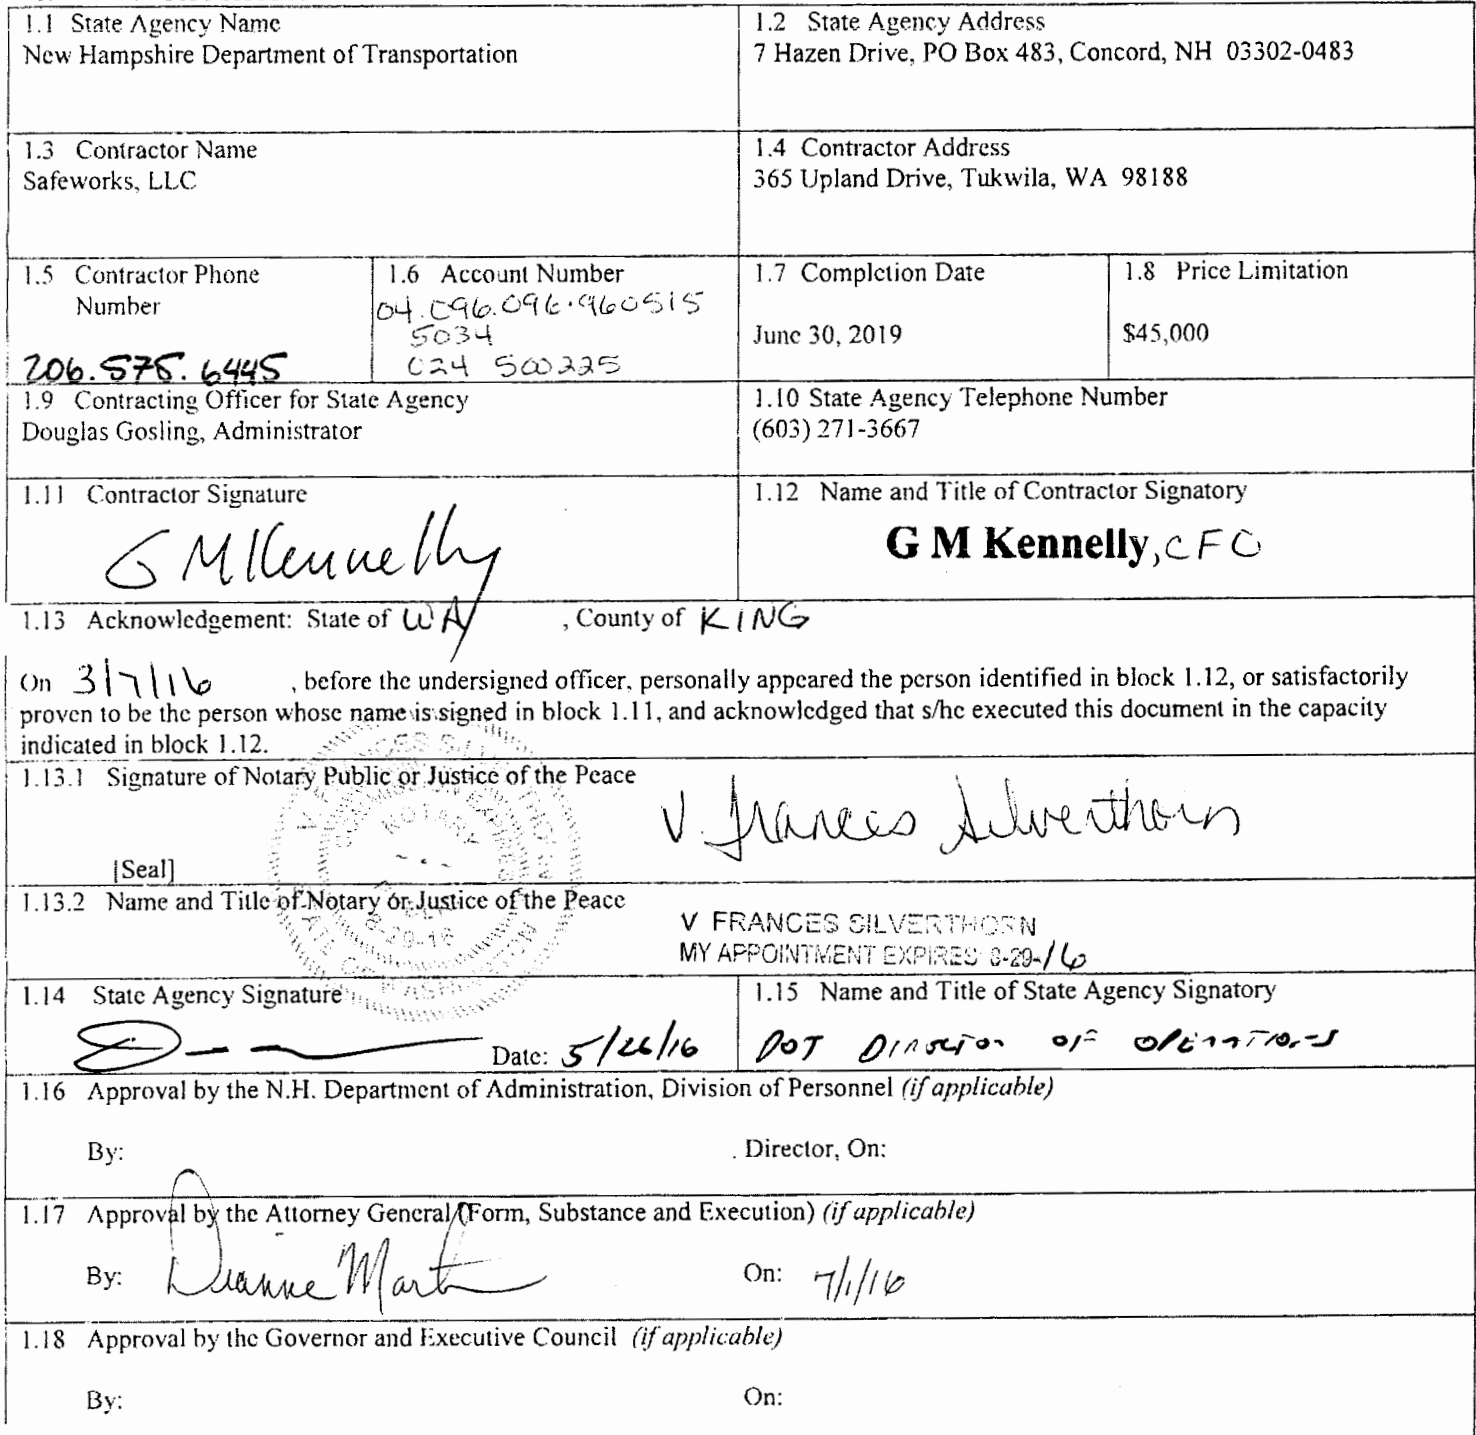 1.1 State Agency Name
New Hampshire Department of Transportation
1.2 State Agency Address
7 Hazen Drive, PO Box 483, Concord, NH 03302-0483
1.3 Contractor Name
Safeworks, LLC
1.4 Contractor Address
365 Upland Drive, Tukwila, WA 98188
1.5 Contractor Phone
Number
206.575.6445
1.6 Account Number
04.096.096.960515
5034
024 500225
1.7 Completion Date
June 30, 2019
1.8 Price Limitation
$45,000
1.9 Contracting Officer for State Agency
Douglas Gosling, Administrator
1.10 State Agency Telephone Number
(603) 271-3667
1.11 Contractor Signature
G M Kennelly
1.12 Name and Title of Contractor Signatory
G M Kennelly, CFO
1.13 Acknowledgement: State of WA , County of KING
On 3/7/16 , before the undersigned officer, personally appeared the person identified in block 1.12, or satisfactorily
proven to be the person whose name is signed in block 1.11, and acknowledged that s/he executed this document in the capacity
indicated in block 1.12.
1.13.1 Signature of Notary Public or Justice of the Peace
V. Frances Silverthorn
NOTARY
[Seal]
1.13.2 Name and Title of Notary or Justice of the Peace
V FRANCES SILVERTHORN
MY APPOINTMENT EXPIRES 8-29-16
1.14 State Agency Signature
Date: 5/26/16
1.15 Name and Title of State Agency Signatory
DOT Director of Operations
1.16 Approval by the N.H. Department of Administration, Division of Personnel (if applicable)
By:
Director, On:
1.17 Approval by the Attorney General (Form, Substance and Execution) (if applicable)
By: Dianne Martin
On: 7/1/16
1.18 Approval by the Governor and Executive Council (if applicable)
By:
On: